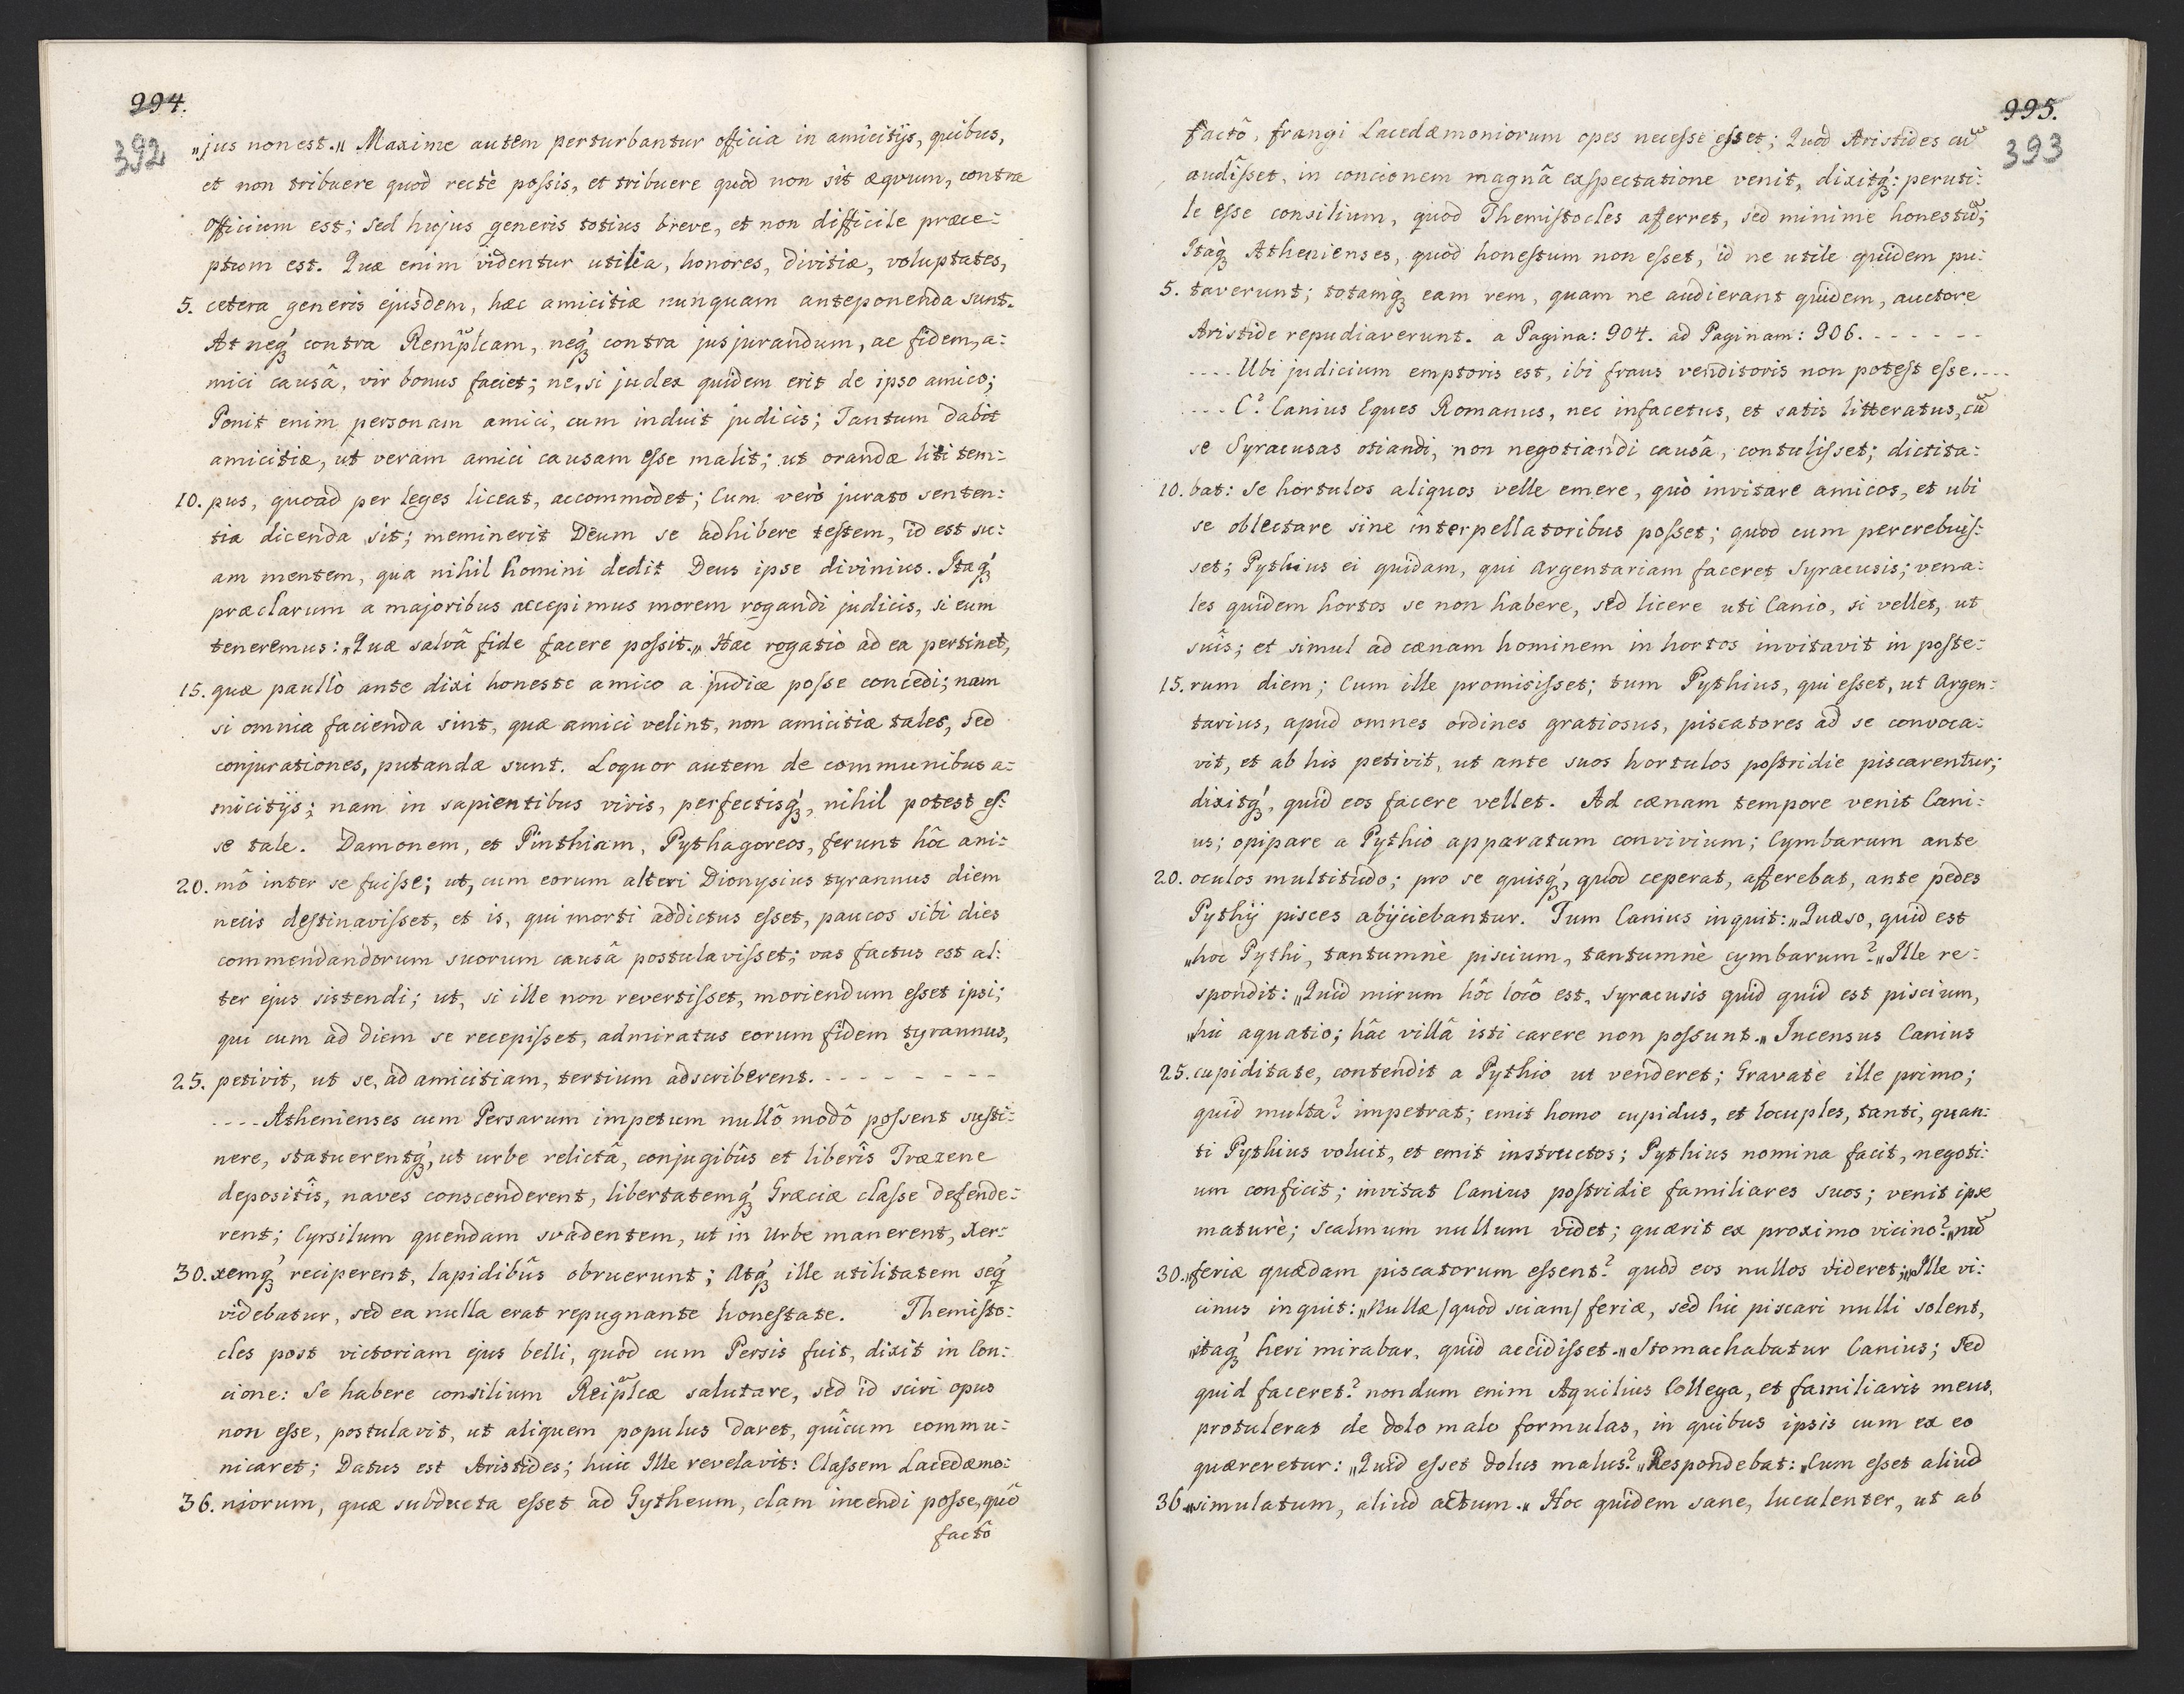 994.
392
„jus non est.„ Maxime autem perturbantur officia in amicitijs, quibus,
et non tribuere quod rectè possis, et tribuere quod non sit æqvum, contra
officium est; sed hujus generis totius breve, et non difficile præce:
ptum est. Quæ enim videntur utilia, honores, divitiæ, voluptates,
5. cetera generis ejusdem, hæc amicitiæ nunquam anteponenda sunt.
At neq́ʒ contra Remp̃lcam, neq́ʒ contra jusjurandum, ac fidem, a:
mici causâ, vir bonus faciet; ne, si judex quidem erit de ipso amico;
Ponit enim personam amici, cum induit judicis; Tantum dabit
amicitiæ, ut veram amici causam esse malit; ut orandæ liti tem:
10. pus, quoad per leges liceat, accommodet; Cum verò jurato senten:
tia dicenda sit; meminerit Deum se adhibere testem, id est su:
am mentem, qua nihil homini dedit Deus ipse divinius. Itaq́ʒ
præclarum a majoribus accepimus morem rogandi judicis, si eum
teneremus: „Quæ salvâ fide facere possit.„ Hæc rogatio ad ea pertinet,
15. quæ paullò ante dixi honeste amico a judice posse concedi; nam
si omnia facienda sint, quæ amici velint, non amicitiæ tales, sed
conjurationes, putandæ sunt. Loquor autem de communibus a:
micitijs; nam in sapientibus viris, perfectisq́ʒ, nihil potest es:
se tale. Damonem, et Pinthiam, Pythagoreos, ferunt hôc ani:
20. mô inter se fuisse; ut, cum eorum alteri Dionysius tyrannus diem
necis destinavisset, et is, qui morti addictus esset, paucos sibi dies
commendandorum suorum causâ postulavisset; vas factus est al:
ter ejus sistendi; ut, si ille non revertisset, moriendum esset ipsi;
qui cum ad diem se recepisset, admiratus eorum fidem tyrannus,
25. petivit, ut se, ad amicitiam, tertium adscriberent. - - - - - - - -
- - - - Athenienses cum Persarum impetum nullô modô possent susti:
nere, statuerentq́ʒ, ut urbe relictâ, conjugibûs et liberîs Træzene
depositîs, naves conscenderent, libertatemq́ʒ Græciæ classe defende:
rent; Cyrsilum quendam svadentem, ut in Urbe manerent, Xer:
30. xemq́ʒ reciperent, lapidibûs obruerunt; Atq́ʒ ille utilitatem seq́ʒ
videbatur, sed ea nulla erat repugnante honestate. Themisto:
cles post victoriam ejus belli, quod cum Persis fuit, dixit in Con:
cione: Se habere consilium Reip̃lcæ salutare, sed id sciri opus
non esse, postulavit, ut aliquem populus daret, quîcum commu:
nicaret; Datus est Aristides; huic Ille revelavit: Classem Lacedæmo:
36. niorum, quæ subducta esset ad Gytheum, clam incendi posse, quô
factô
995.
393
factô, frangi Lacedæmoniorum opes necesse esset; Quod Aristides cũ
audîsset, in concionem magnâ exspectatione venit, dixitq́ʒ: peruti:
le esse consilium, quod Themistocles afferret, sed minime honestũ;
Itaq́ʒ Athenienses, quod honestum non esset, id ne utile quidem pu:
5. taverunt; totamqʒ eam rem, quam ne audierant quidem, auctore
Aristide repudiaverunt. a Pagina: 904. ad Paginam: 906. - - - - - -
- - - - Ubi judicium emptoris est, ibi fraus venditoris non potest esse. - - -
- - - - C? Canius Eques Romanus, nec infacetus, et satis litteratus, cũ
se Syracusas otiandi, non negotiandi causâ, contulisset; dictita:
10. bat: se hortulos aliquos velle emere, quò invitare amicos, et ubi
se oblectare sine interpellatoribus posset; quod cum percrebuis:
set; Pythius ei quidam, qui argentariam faceret Syracusis; vena:
les quidem hortos se non habere, sed licere uti Canio, si vellet, ut
suîs; et simul ad cænam hominem in hortos invitavit in poste:
15. rum diem; Cum ille promisisset; tum Pythius, qui esset, ut Argen:
tarius, apud omnes ordines gratiosus, piscatores ad se convoca:
vit, et ab his petivit, ut ante suos hortulos postridie piscarentur;
dixitq́ʒ, quid eos facere vellet. Ad cænam tempore venit Cani:
us; opipare a Pythio apparatum convivium; Cymbarum ante
20. oculos multitudo; pro se quisq́ʒ, quod ceperat, afferebat, ante pedes
Pythij pisces abijciebantur. Tum Canius inquit: „Quæso, quid est
„hoc Pythi, tantumnè piscium, tantumnè cymbarum?„ Ille re:
spondit: „Quid mirum hôc locô est, Syracusis quid quid est piscium,
„hic aquatio; hâc villâ isti carere non possunt.„ Incensus Canius
25. cupiditate, contendit a Pythio ut venderet; Gravatè ille primo;
quid multa? impetrat; emit homo cupidus, et locuples, tanti, quan:
ti Pythius voluit, et emit instructos; Pythius nomina facit, negoti:
um conficit; invitat Canius postridie familiares suos; venit ipse
maturè; scalmum nullum videt; quærit ex proximo vicino? „nũ
30. „feriæ quædam piscatorum essent? quòd eos nullos videret;„ Ille vi:
cinus inquit: „Nullæ /quod sciam/ feriæ, sed hic piscari nulli solent,
„itaq́ʒ heri mirabar, quid accidisset.„ Stomachabatur Canius; sed
quid faceret? nondum enim Aquilius Collega, et familiaris meus,
protulerat de dolo malo formulas, in quibus ipsis cum ex eo
quæreretur: „Quid esset dolus malus?„ Respondebat: „Cum esset aliud
36. „simulatum, aliud actum.„ Hoc quidem sane, luculenter, ut ab